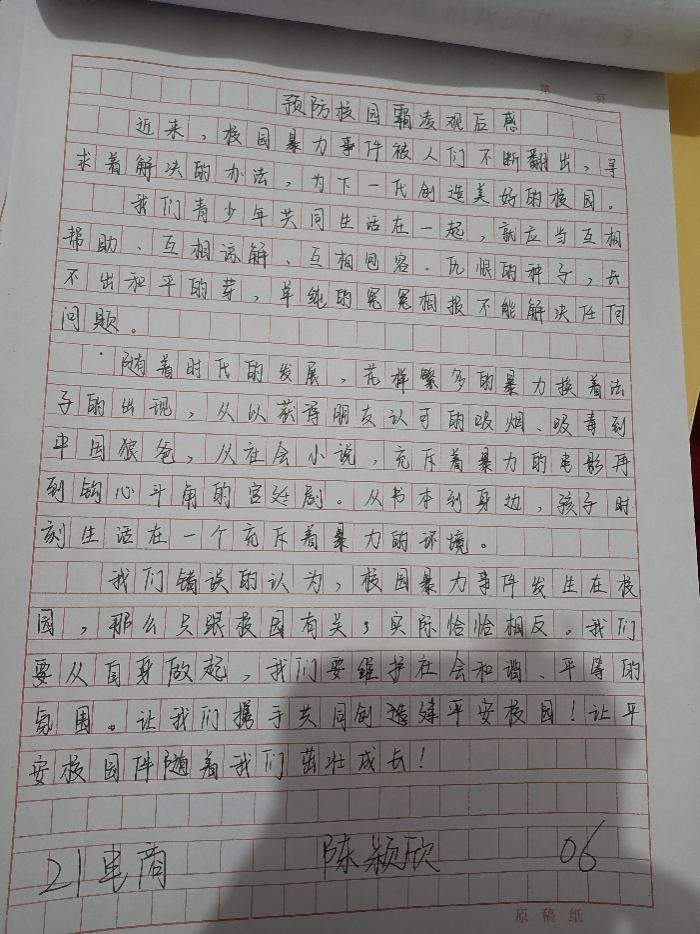 第 页
预防校园霸凌观后感
近来，校园暴力事件被人们不断翻出，寻
求着解决的办法，为下一代创造美好的校园。
我们青少年共同生活在一起，就应当互相
帮助、互相谅解、互相包容.仇恨的种子，长
不出和平的芽，单纯的冤冤相报不能解决任何
问题。
随着时代的发展，花样繁多的暴力换着法
子的出现，从以获得朋友认可的吸烟、吸毒到
中国狼爸，从社会小说，充斥着暴力的电影再
到钩心斗角的宫廷剧。从书本到身边，孩子时
刻生活在一个充斥着暴力的环境。
我们错误的认为，校园暴力事件发生在校
园，那么只跟校园有关；实际恰恰相反。我们
要从自身做起，我们要维护社会和谐、平等的
氛围。让我们携手共同创造建平安校园！让平
安校园伴随着我们茁壮成长！
21电商 陈颖欣 06
原稿纸